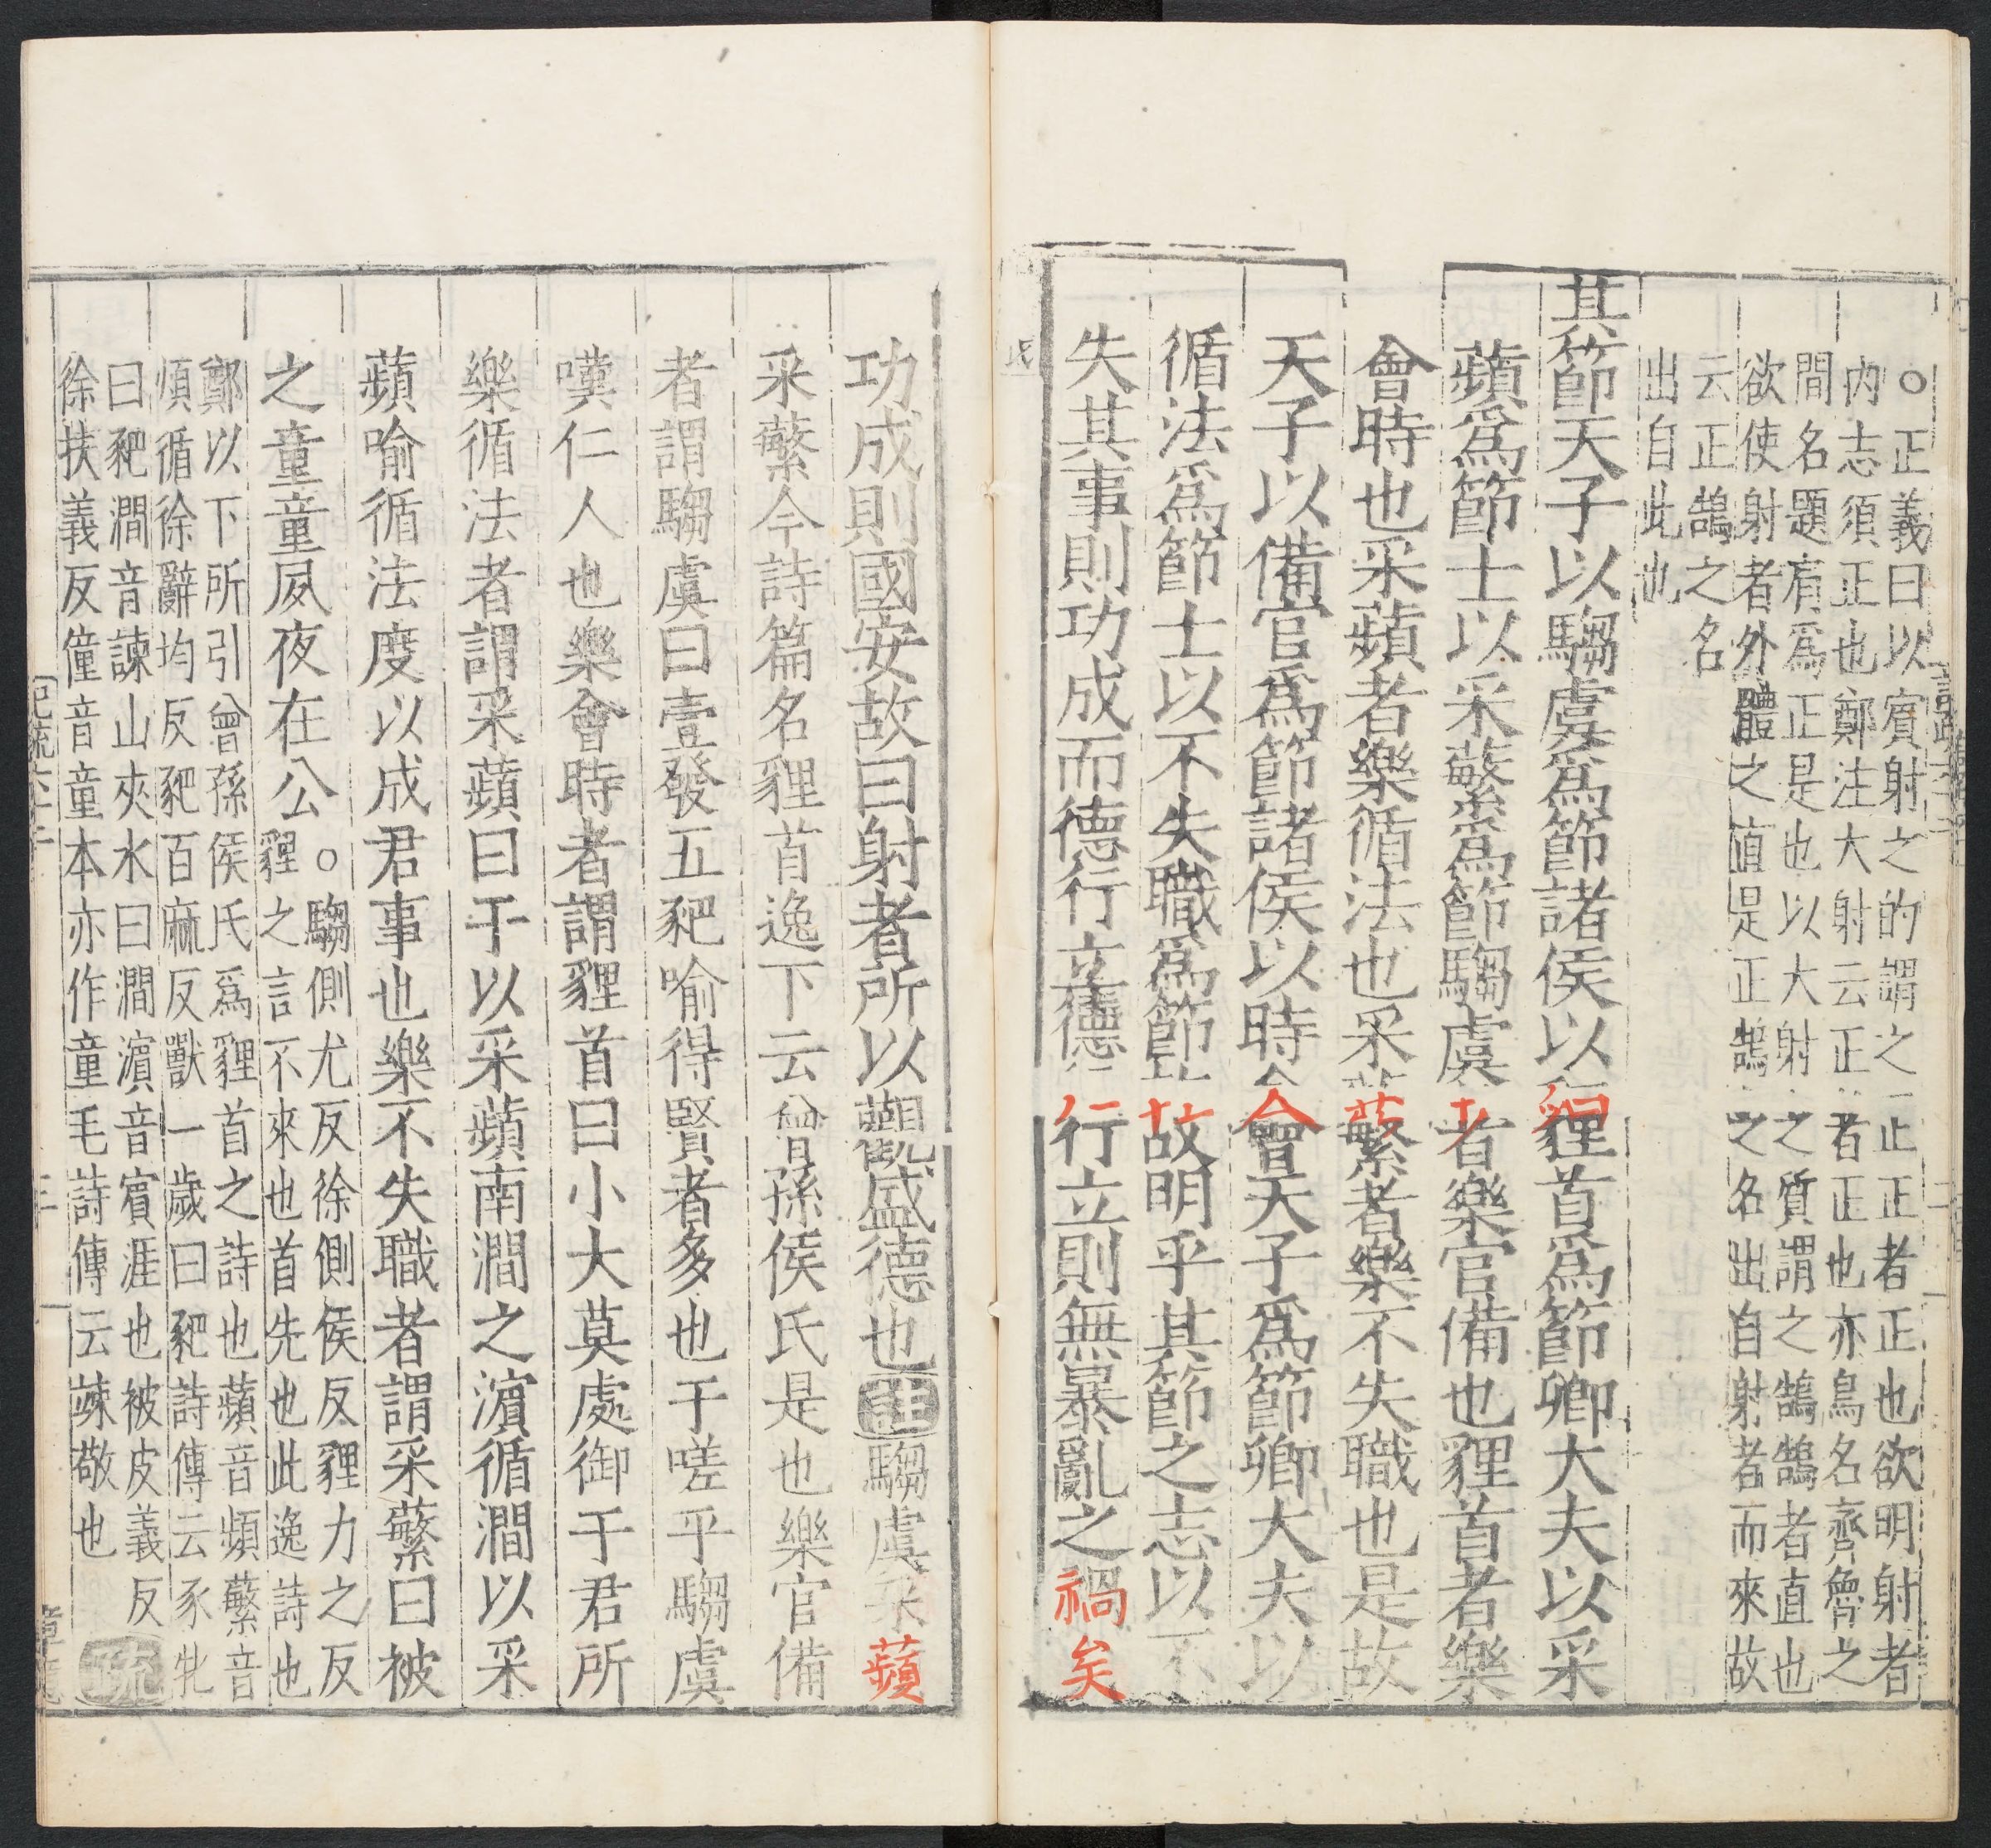 ○正義曰以賓射之的謂之正正者正也欲明射者
内志須正也鄭注大射云正者正也亦鳥名齊魯之
間名題肩爲正是也以大射之質謂之鵠鵠者直也
欲使射者外體之直是正鵠之名出自射者而來故
云正鵠之名
出自此也
其節天子以騶虞爲節諸侯以貍首爲節卿大夫以采
蘋爲節士以采蘩爲節騶虞者樂官備也貍首者樂
會時也采蘋者樂循法也采蘩者樂不失職也是故
天子以備官爲節諸侯以時會天子爲節卿大夫以
循法爲節士以不失職爲節故明乎其節之志以不
失其事則功成而德行立德行立則無暴亂之禍矣
功成則國安故曰射者所以觀盛德也註騶虞采蘋
采蘩今詩篇名貍首逸下云曾孫侯氏是也樂官備
者謂騶虞曰壹發五豝喻得賢者多也于嗟乎騶虞
嘆仁人也樂會時者謂貍首曰小大莫處御于君所
樂循法者謂采蘋曰于以采蘋南澗之濱循澗以采
蘋喻循法度以成君事也樂不失職者謂采蘩曰被
之童童夙夜在公
○騶側尤反徐側侯反貍力之反
貍之言不來也首先也此逸詩也
鄭以下所引曾孫侯氏爲貍首之詩也蘋音頻蘩音
煩循徐辭均反豝百麻反獸一歲曰豝詩傳云豕牝
曰豝澗音諫山夾水曰澗濱音賓涯也被皮義反
徐扶義反僮音童本亦作童毛詩傳云竦敬也
疏